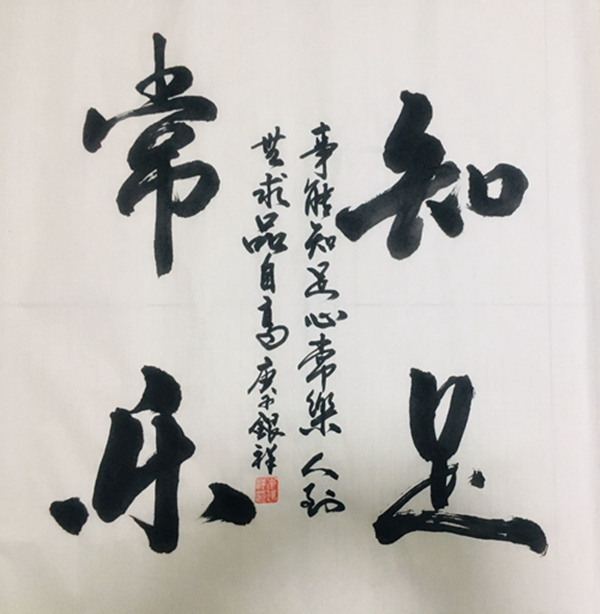 知足
事能知足心常樂 人到
无求品自高 庚子 銀祥
常乐